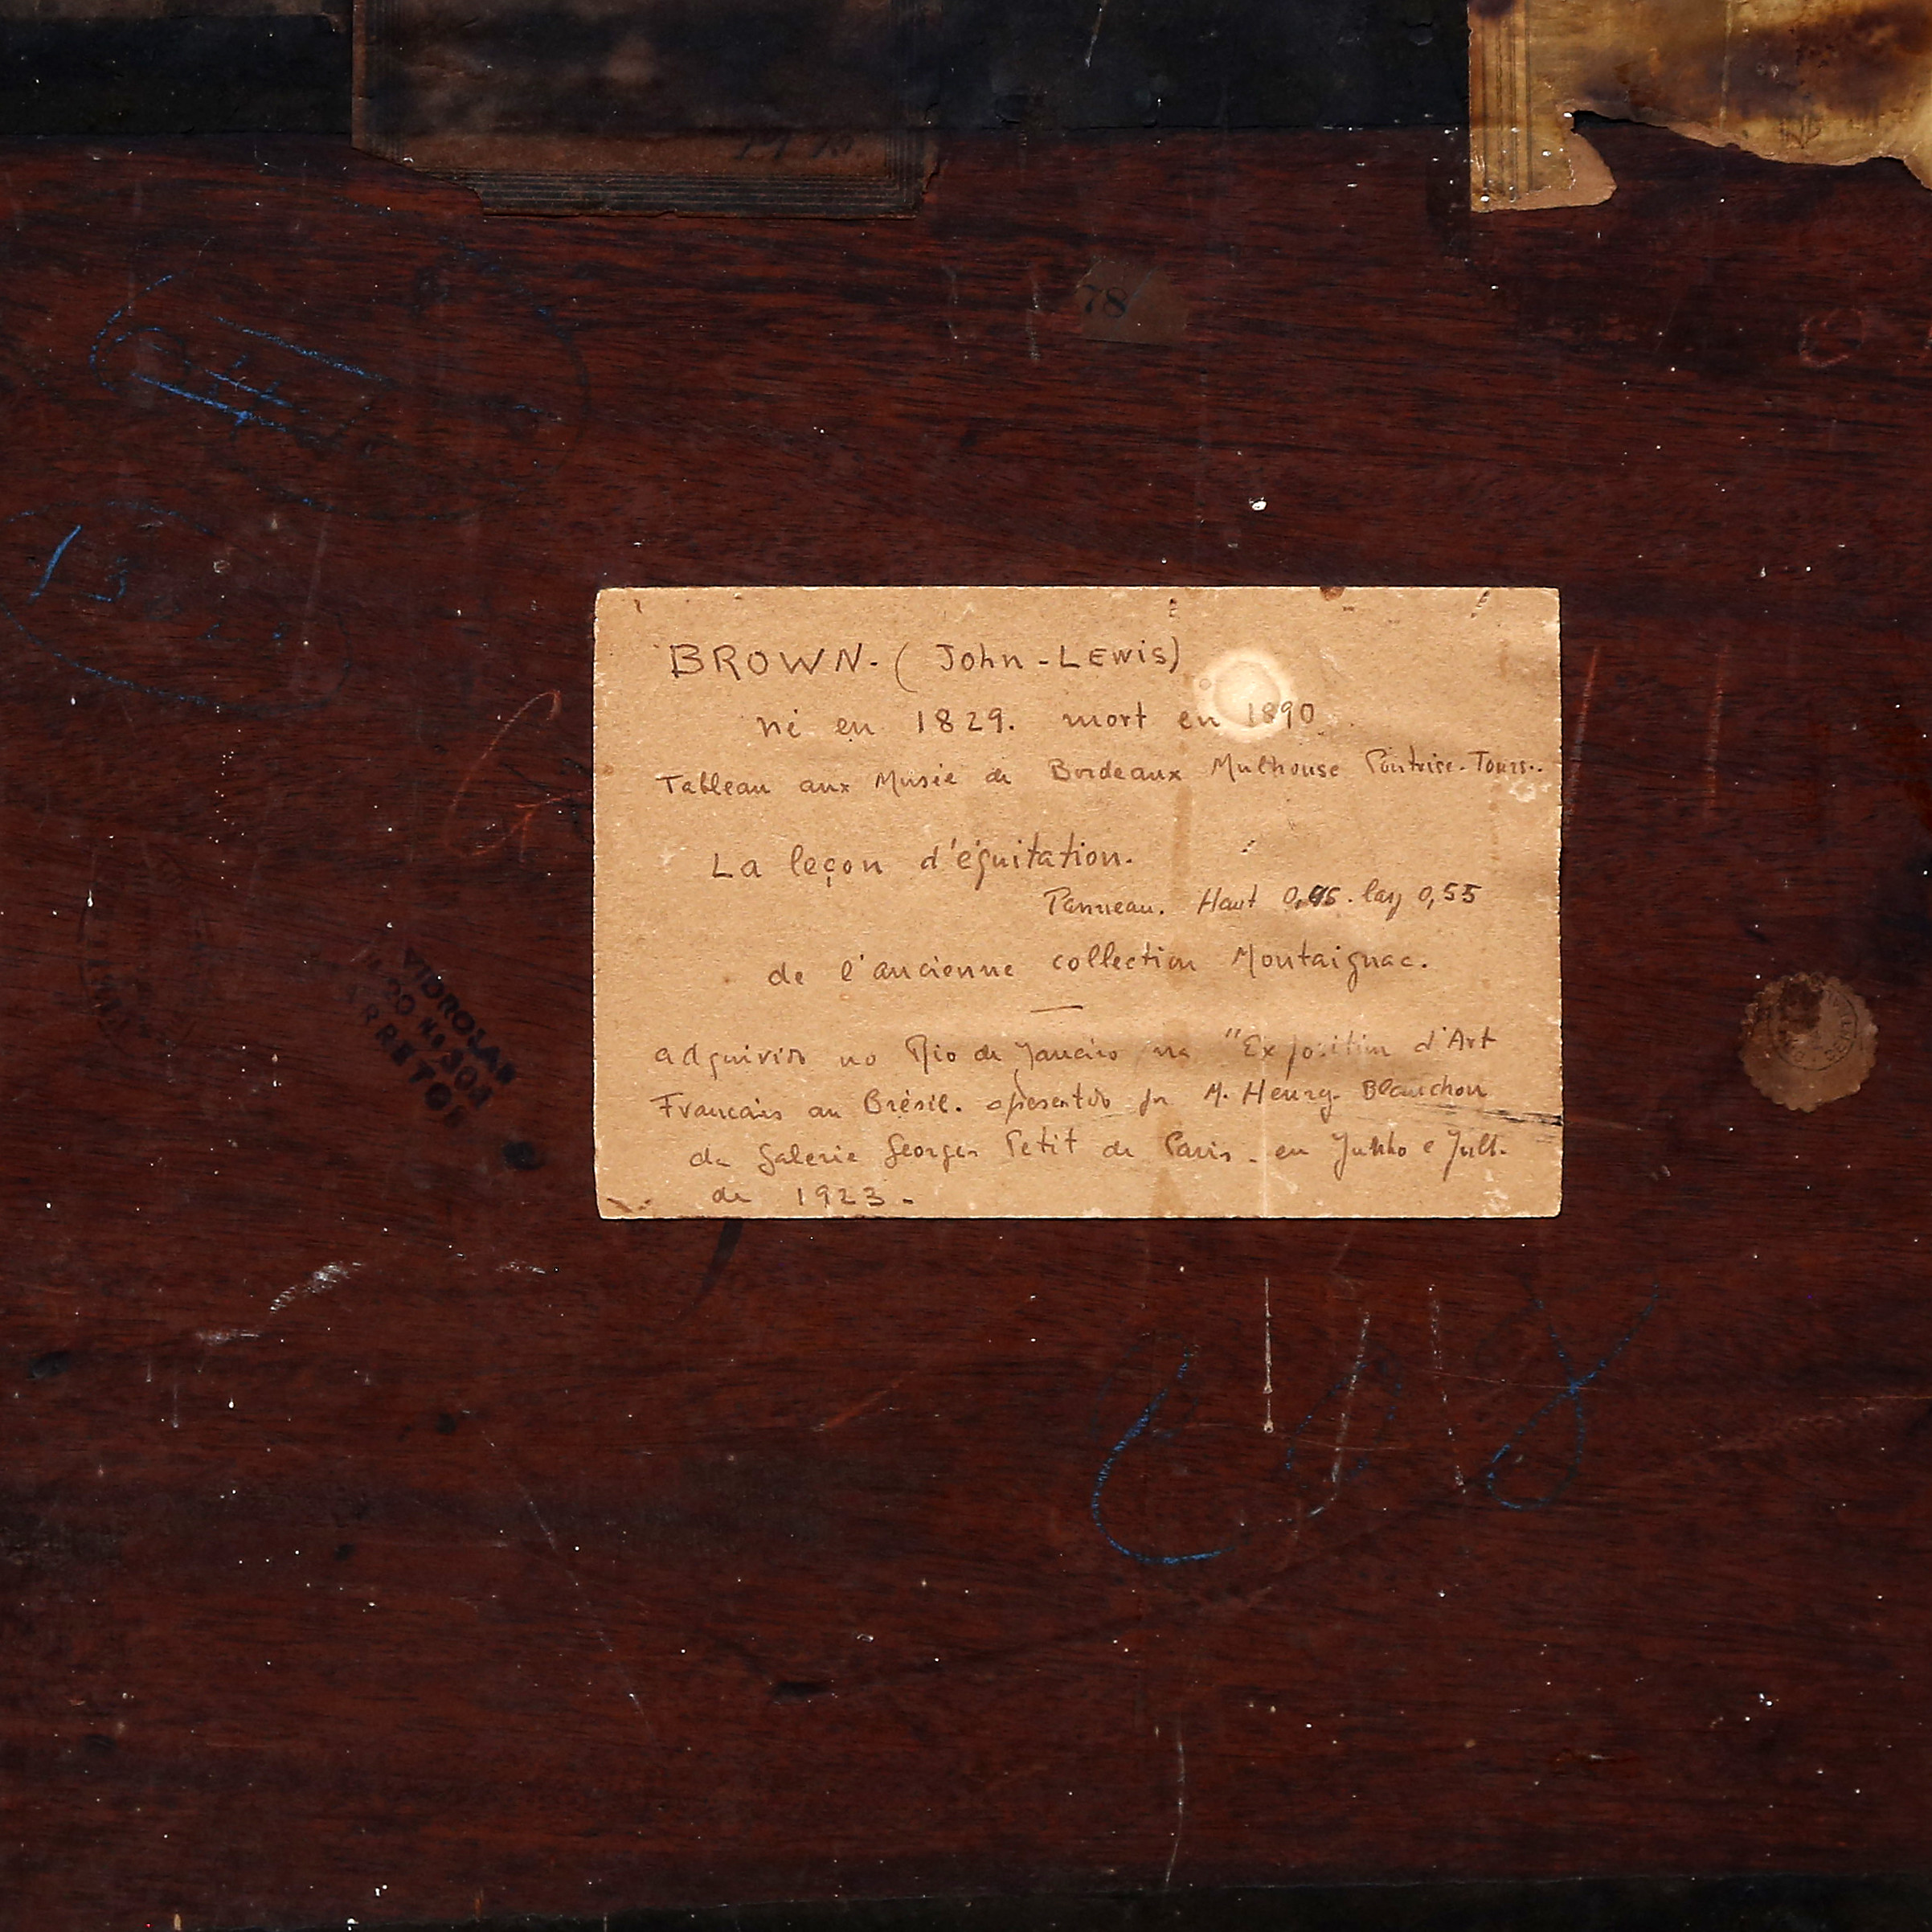 78
BROWN. (John-LEWIS)
né en 1829. mort en 1890.
Tableau aux Musée de Bordeaux Mulhouse Pontoise-Tours..
La leçon d'équitation.
Panneau. Haut 0,45. larg 0,55
de l'ancienne collection Montaignac.
adquirido no Rio de Janeiro na "Exposition d'Art
Francais au Brésil. apresentado por M. Henry. Blanchon
da Galerie Georges Petit de Paris - en Junho e Julh.
de 1923 -